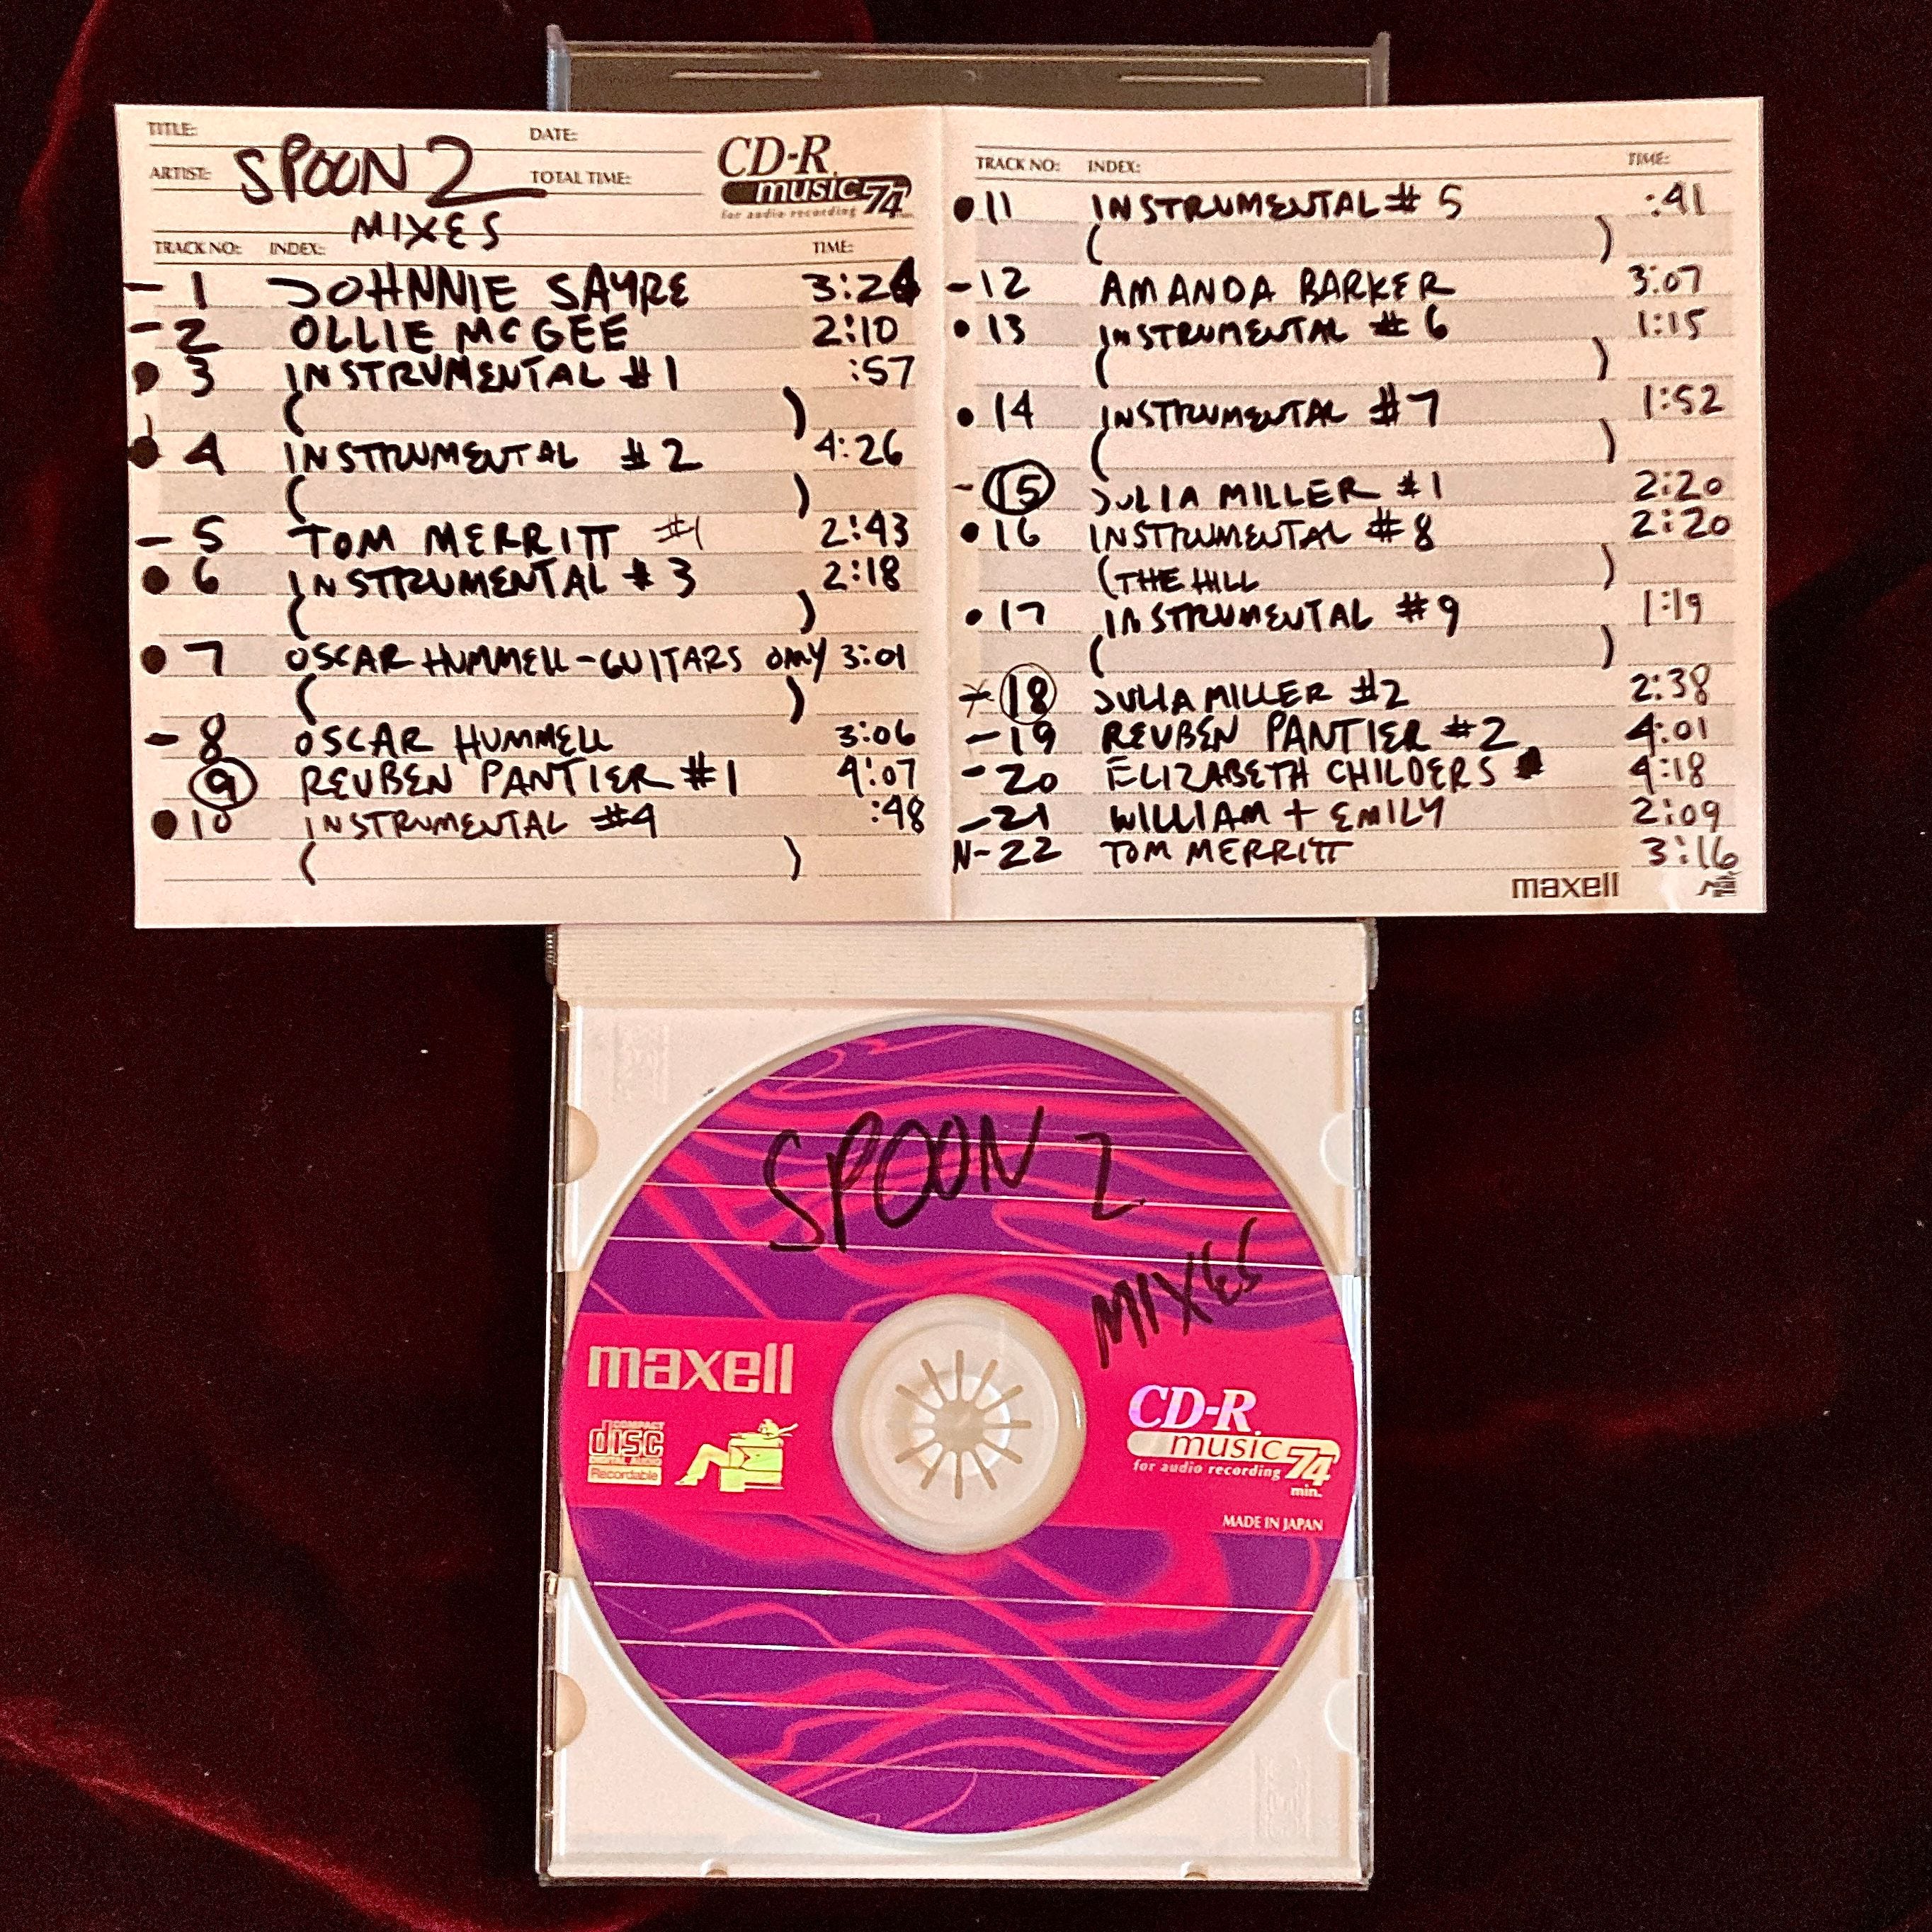 TITLE:
DATE:
ARTIST:
SPOON 2
MIXES
TOTAL TIME:
CD-R
music 74 min.
for audio recording
TRACK NO: INDEX: TIME:
- 1 JOHNNIE SAYRE 3:24
- 2 OLLIE McGEE 2:10
● 3 INSTRUMENTAL #1 :57
( )
● 4 INSTRUMENTAL #2 4:26
( )
- 5 TOM MERRITT #1 2:43
● 6 INSTRUMENTAL #3 2:18
( )
● 7 OSCAR HUMMELL-GUITARS ONLY 3:01
( )
- 8 OSCAR HUMMELL 3:06
9 REUBEN PANTIER #1 4:07
● 10 INSTRUMENTAL #4 :48
( )
TRACK NO: INDEX: TIME:
● 11 INSTRUMENTAL #5 :41
( )
- 12 AMANDA BARKER 3:07
● 13 INSTRUMENTAL #6 1:15
( )
● 14 INSTRUMENTAL #7 1:52
( )
- 15 JULIA MILLER #1 2:20
● 16 INSTRUMENTAL #8 2:20
(THE HILL )
● 17 INSTRUMENTAL #9 1:19
( )
18 JULIA MILLER #2 2:38
- 19 REUBEN PANTIER #2 4:01
- 20 ELIZABETH CHILDERS 4:18
- 21 WILLIAM + EMILY 2:09
N- 22 TOM MERRITT 3:16
maxell
SPOON 2
MIXES
maxell
COMPACT
disc
DIGITAL AUDIO
Recordable
CD-R
music 74
for audio recording
min.
MADE IN JAPAN